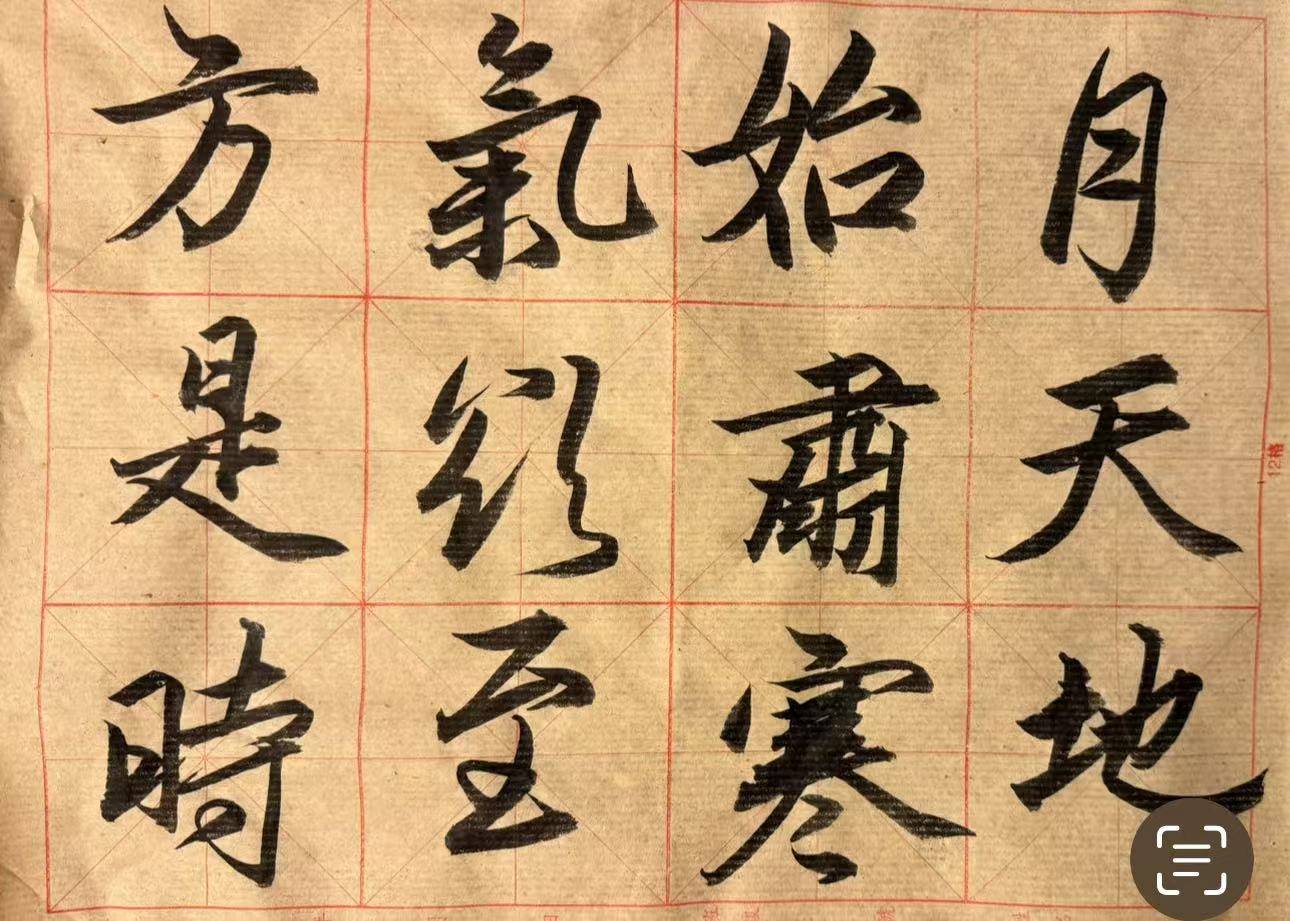 月天地
始肅寒
氣欲至
方是時
12格